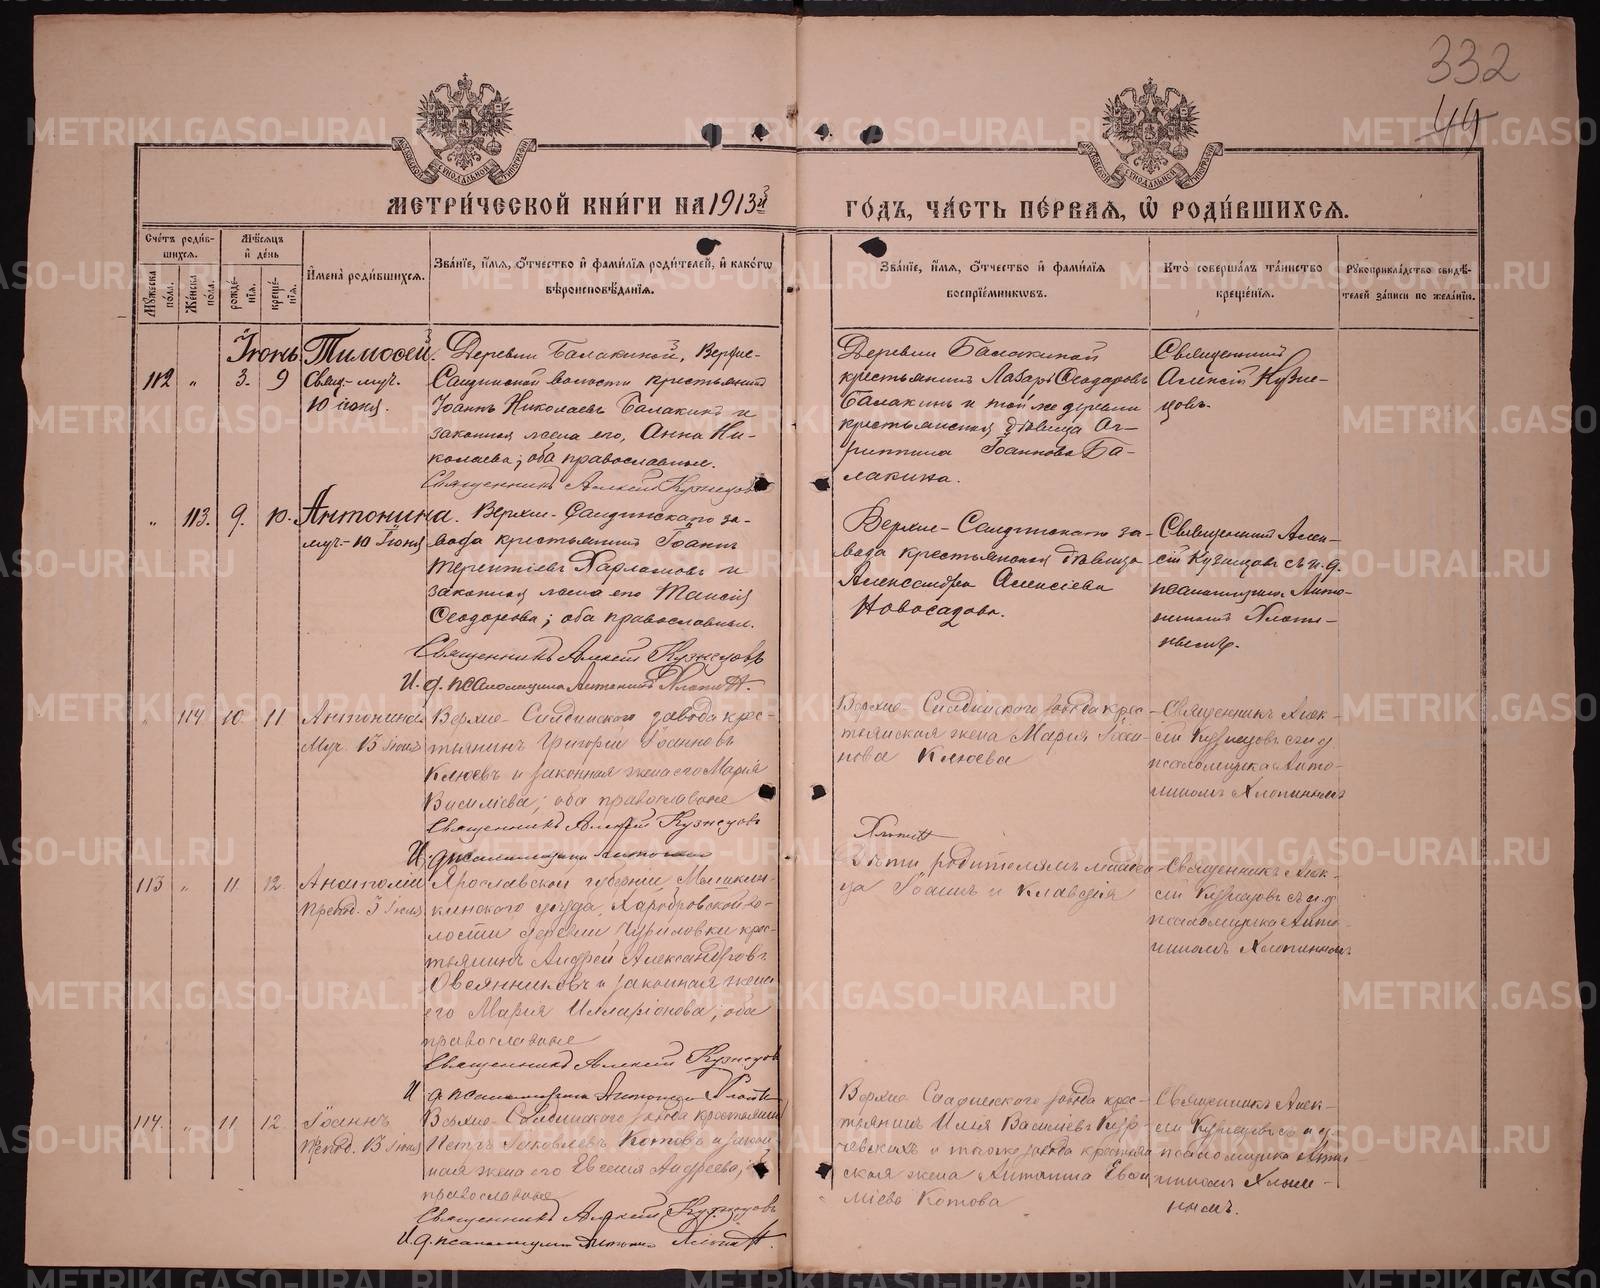 332
44
МЕТРИ́ЧЕСКОЙ КНИ́ГИ НА 1913й
ГО́ДЪ, ЧА́СТЬ ПЕ́РВАЯ, Ѡ҆ РОДИ́ВШИХСЯ.
Сче́тъ роди́в-
шихся.
Мꙋ́жеска по́ла.
Же́нска по́ла.
Мѣ́сяцъ
и҆ де́нь
рожде́-
нїя.
креще́-
нїя.
И҆мена̀ роди́вшихся.
Зва́нїе, и҆́мя, ѻ҆́тчество и҆ фами́лїя роди́телей, и҆ како́гѡ
вѣроисповѣ́данїя.
Зва́нїе, и҆́мя, ѻ҆́тчество и҆ фами́лїя
воспрїе́мникѡвъ.
Кто̀ соверша́лъ та́инство
креще́нїя.
Рꙋкоприкла́дство свидѣ́-
телей за́писи по жела́нїю.
Іюнь
112 " 3. 9
Тимофей.
Свящ.-муч.
10 іюня.
Деревни Балакиной, Верхне-
Салдинской волости крестьянинъ
Іоаннъ Николаевъ Балакинъ и
законная жена его, Анна Ни-
колаева; оба православные.
Священникъ Алексей Кузнецовъ
Деревни Балакиной
крестьянинъ Лазарь Ѳеодоровъ
Балакинъ и той же деревни
крестьянская дѣвица Аг-
риппина Іоаннова Ба-
лакина.
Священникъ
Алексій Кузне-
цовъ.
" 113. 9. 10.
Антонина.
муч.- 10 Іюня
Верхне-Салдинскаго за-
вода крестьянинъ Іоаннъ
Терентіевъ Харламовъ и
законная жена его Таисія
Ѳеодорова; оба православные.
Священникъ Алексей Кузнецовъ
И. д. псаломщика Антонинъ
Верхне-Салдинскаго за-
вода крестьянская дѣвица
Александра Алексіева
Новосадова.
Священникъ Алек-
сій Кузнецовъ съ и. д.
псаломщика Анто-
ниномъ Хлопи-
нымъ.
" 114 10 11
Антонина
Муч. 13 іюня
Верхне-Салдинскаго завода крес-
тьянинъ Григорій Іоанновъ
Клюевъ и законная жена его Марія
Василіева; оба православные
Священникъ Алексей Кузнецовъ
И. д. псаломщика Антонинъ
Хлопинъ
Верхне-Салдинскаго завода крес-
тьянская жена Марія Іоан-
нова Клюева
Священникъ Алек-
сій Кузнецовъ съ и д
псаломщика Анто-
ниномъ Хлопинымъ
113 " 11 12
Анатолій
Препод. 3 Іюля
Ярославской губерніи Мышкин-
скаго уѣзда,
волости деревни Чуриловки крес-
тьянинъ Андрей Александровъ
Овсянниковъ и законная жена
его Марія Илларіонова; оба
православные
Священникъ Алексей Кузнецовъ
И д псаломщика Антонинъ
Дѣти родителямъ младен-
ца Іоаннъ и Клавдія
Священникъ Алек-
сій Кузнецовъ съ и д
псаломщика Анто-
ниномъ Хлопинымъ
114. " 11 12.
Іоаннъ
Препод. 13 іюня
Верхне-Салдинскаго завода крестьянинъ
Петръ Іаковлевъ Котовъ и закон-
ная жена его Евгенія Андреева;
православные
Священникъ Алексей Кузнецовъ
И. д. псаломщика Антонинъ
Верхне Салдинскаго завода крес-
тьянинъ Илія Василіевъ
и того же завода крестьян-
ская жена Антонина
Котова
Священникъ Алек-
сій Кузнецовъ съ и д
псаломщика Анто-
ниномъ Хлопи-
нымъ.
METRIKI.GASO-URAL.RU